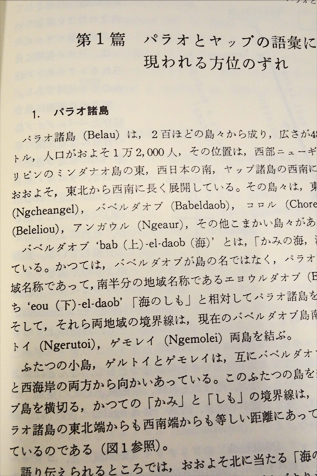 第1篇 パラオとヤップの語彙に
現われる方位のずれ
1. パラオ諸島
パラオ諸島 (Belau) は，2百ほどの島々から成り，広さが48
トル，人口がおおよそ1万2,000人，その位置は，西部ニューギ
リピンのミンダナオ島の東，西日本の南，ヤップ諸島の西南に
おおよそ，東北から西南に長く展開している。その島々は，東
(Ngcheangel)， バベルダオブ (Babeldaob)， コロル (Chore
(Beleliou)，アンガウル (Ngeaur)，その他こまかい島々があ
バベルダオブ 'bab (上)-el-daob (海)' とは，「かみの海，海
ている。かつては，バベルダオブが島の名ではなく，パラオ
域名称であって，南半分の地域名称であるエヨウルダオブ (E
ち 'eou (下)-el-daob' 「海のしも」と相対してパラオ諸島を
そして，それら両地域の境界線は，現在のバベルダオブ島南
トイ (Ngerutoi)，ゲモレイ (Ngemolei) 両島を結ぶ。
ふたつの小島，ゲルトイとゲモレイは，互にバベルダオブ
と西海岸の両方から向かいあっている。このふたつの島を
ブ島を横切る，かつての「かみ」と「しも」の境界線は，
ラオ諸島の東北端からも西南端からも等しい距離にあって
ているのである (図1参照)。
語り伝えられるところでは，おおよそ北に当たる「海の